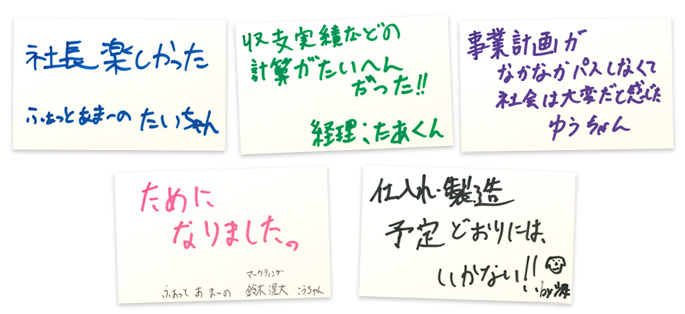 社長 楽しかった
ふぁっとあまーの たいちゃん
収支実績などの
計算がたいへん
だった!!
経理:たあくん
事業計画が
なかなかパスしなくて
社会は大変だと感じた
ゆうちょん
ために
なりました。
マーケティング
ふぁっと あまーの 鈴木滉大 こうちゃん
仕入れ・製造
予定どおりには、
いかない!!
by